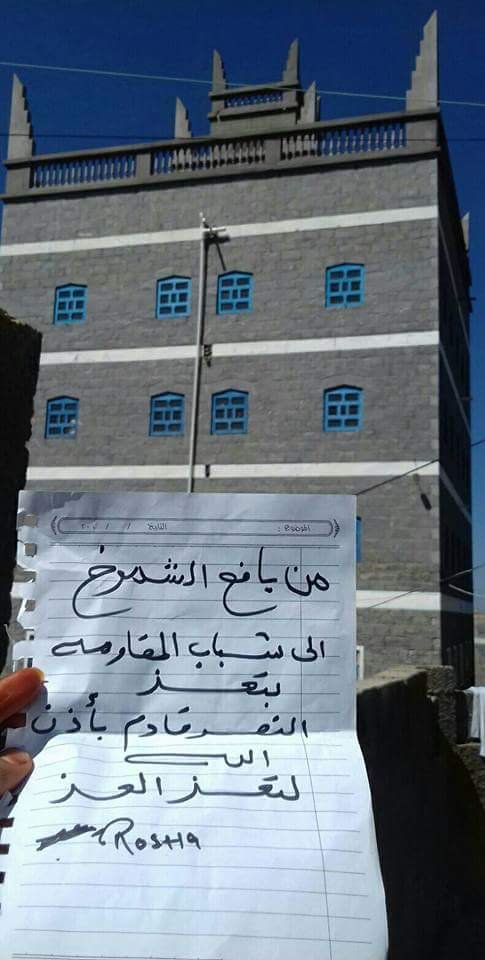 الموضوع : التاريخ / / ٢٠
من يافع الشموخ
الى شباب المقاومه
بتعز
النصر قادم بأذن
الله
لتعز العز
ROSHA